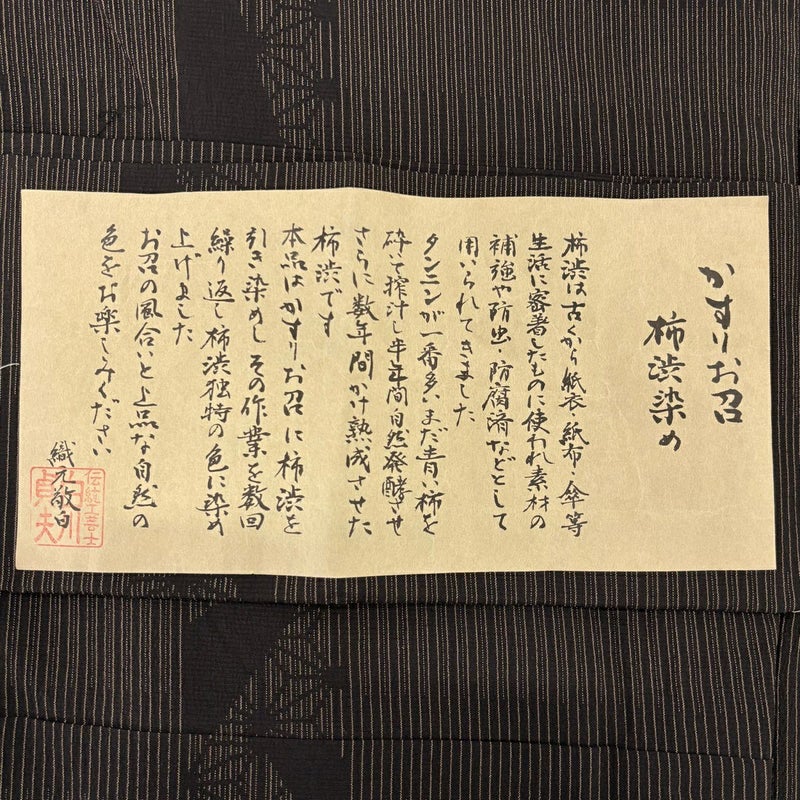 かすりお召
柿渋染め
柿渋は古くから紙衣・紙布・傘等
生活に密着したものに使われ素材の
補強や防虫・防腐済などとして
用いられてきました
タンニンが一番多いまだ青い柿を
砕いて搾汁し半年間自然発酵させ
さらに数年間かけ熟成させた
柿渋です
本品はかすりお召に柿渋を
引き染めしその作業を数回
繰り返し柿渋独特の色に染め
上げました
お召の風合いと上品な自然の
色をお楽しみください
織元敬白
伝統工芸士